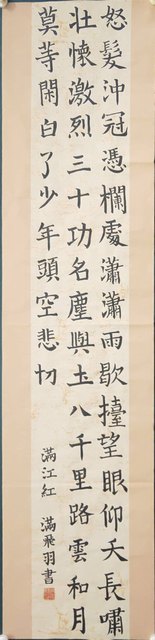 怒髮沖冠憑欄處瀟瀟雨歇擡望眼仰天長嘯
壯懷激烈三十功名塵與土八千里路雲和月
莫等閑白了少年頭空悲切
滿江紅 滿飛羽書